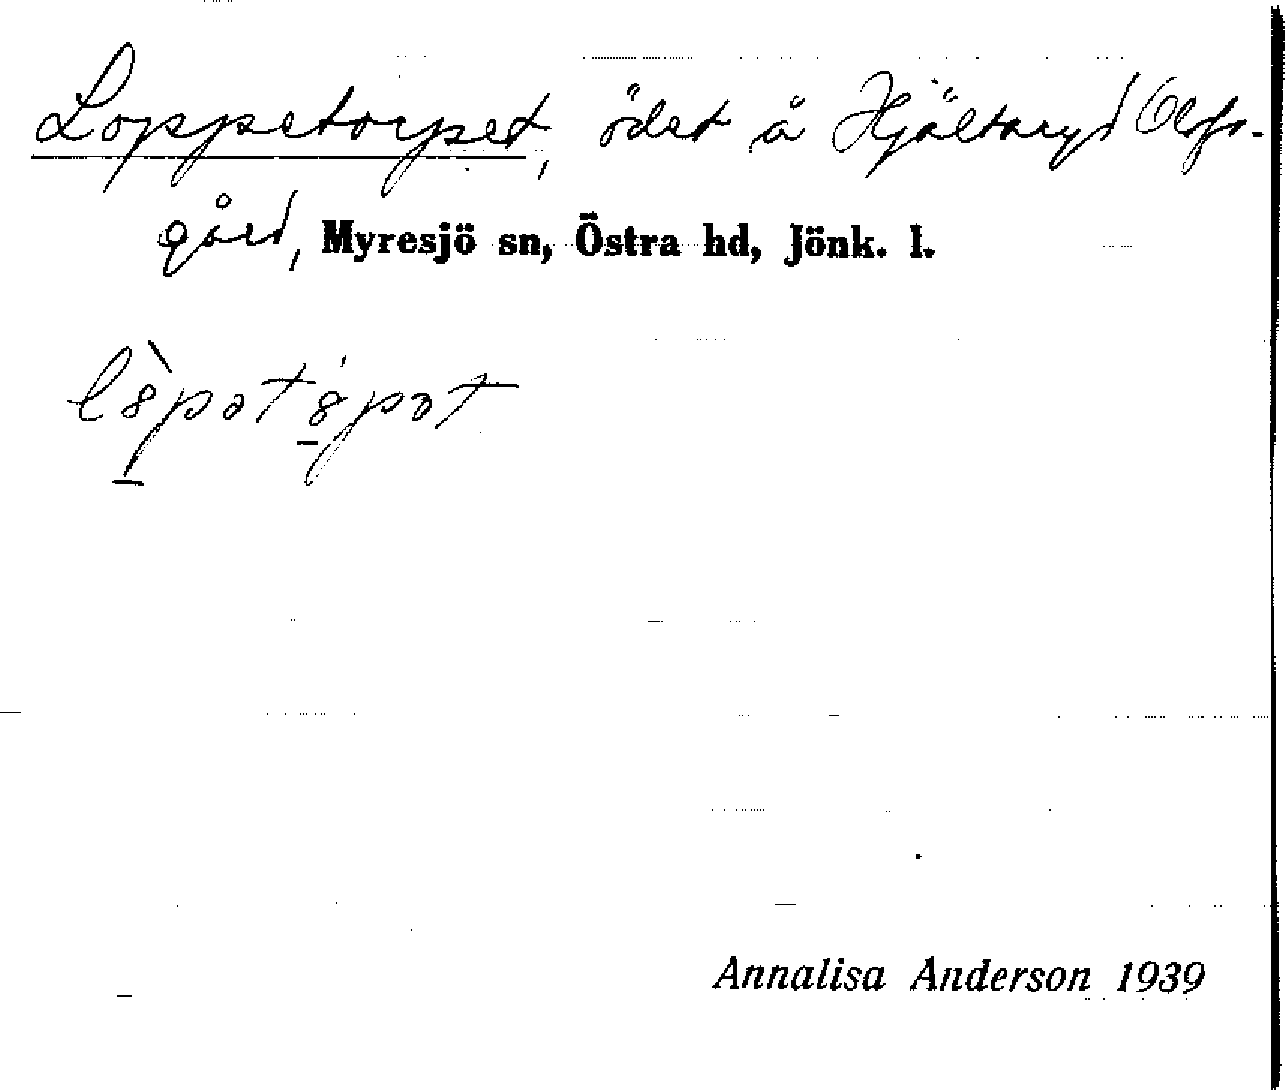 Loppetorpet, ödet å Hjältaryd Olofs-
gård, Myresjö sn, Östra hd, Jönk. l.
Annalisa Anderson 1939